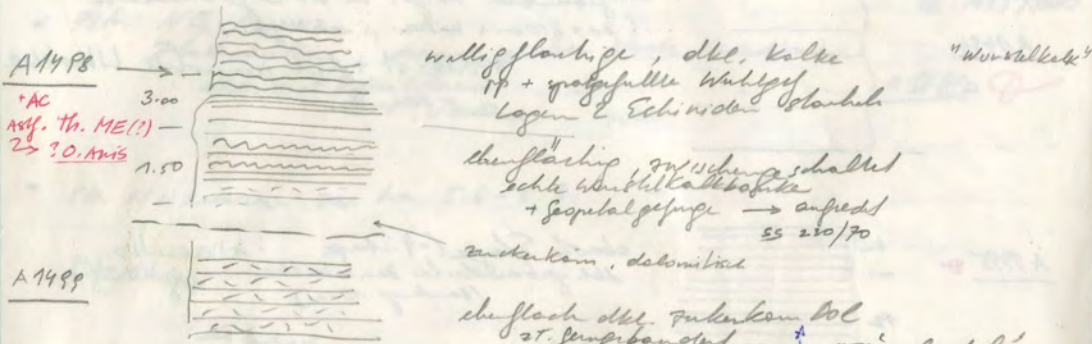 A1498
+AC
Th. ME(?)
? O. Anis
3.00
1.50
A1499
wellig flächige, dkl. Kalke
pp + spatgefüllte Wühlgef
Lagen Echiniden stacheln
"Wurstelkalk"
ebenflächig, zwischengeschaltet
echte Wurstelkalkbänke
+ Geopetalgefüge → aufrecht
ss 230/70
zuckerkörn. dolomitisch
ebenflach dkl. zuckerkörn Dol
zT. feingebändert